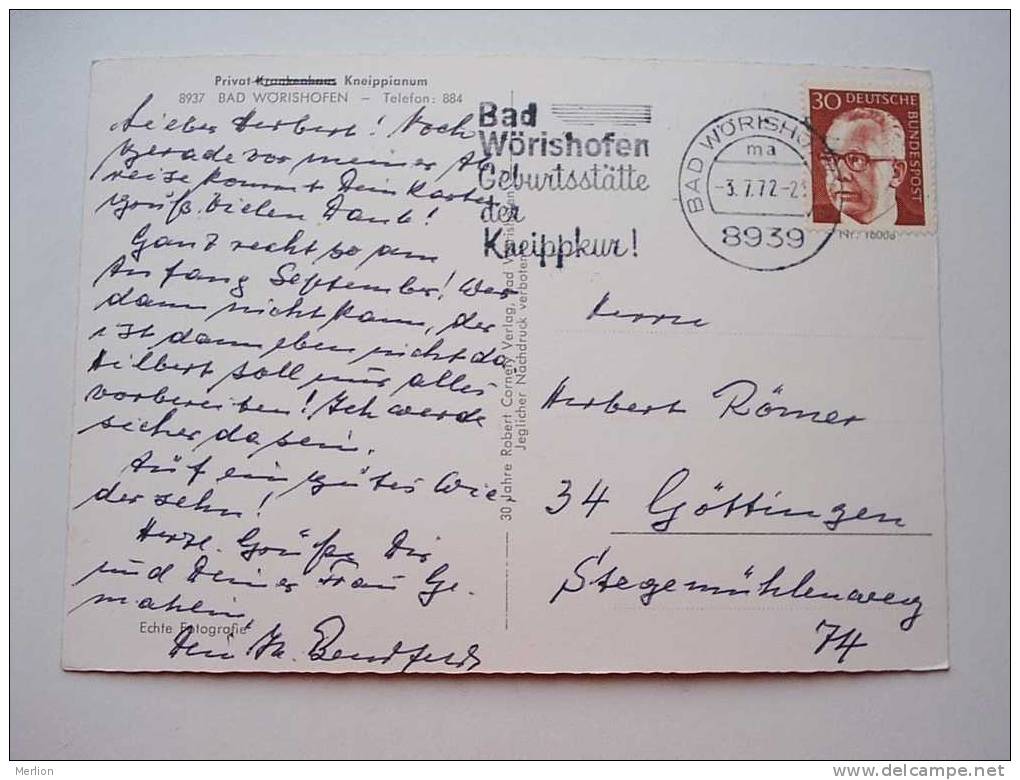 Privat-Krankenhaus Kneippianum
8937 BAD WÖRISHOFEN – Telefon: 884
Lieber Herbert! Noch
gerade vor meiner Ab
reise kommt Dein Karten
gruß. Vielen Dank!
Ganz recht so am
Anfang September! Wer
dann nicht kann, der
ist dann eben nicht da,
Hilbert soll nur alles
vorbereiten! Ich werde
sicher da sein.
Auf ein gutes Wie
dersehn!
Herzl. Grüße Dir
und Deiner Frau Ge-
mahlin
Dein
Echte Fotografie
30 Jahre Robert Cornely Verlag, Bad Wörishofen
Jeglicher Nachdruck verboten
Bad
Wörishofen
Geburtsstätte
der
Kneippkur!
BAD WÖRISHOFEN
ma
-3.7.72-2
8939
30 DEUTSCHE
BUNDESPOST
Nr. 16006
Herrn
Herbert Römer
34 Göttingen
Stegemühlenweg
74
Merlion
delcampe.net